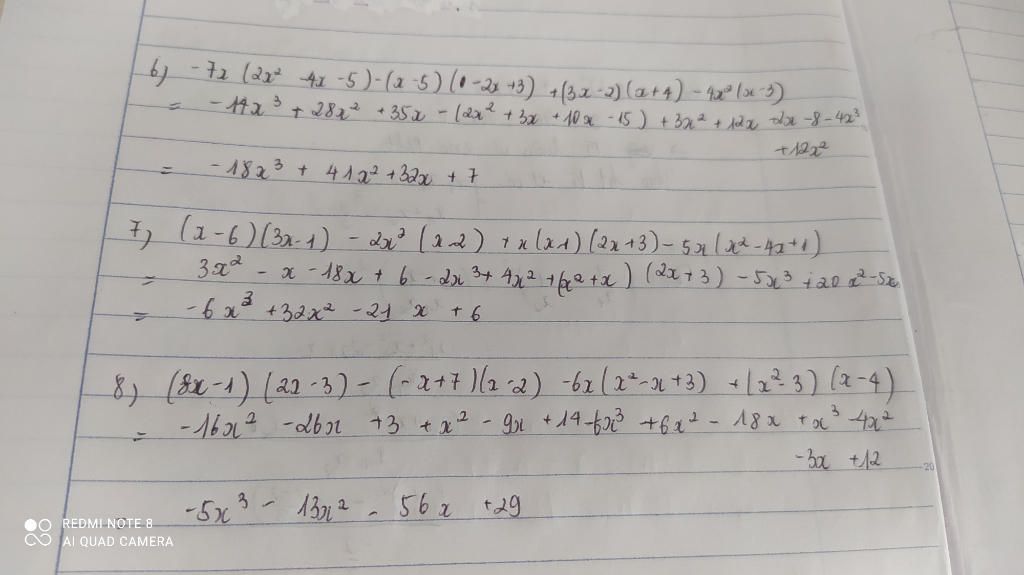 6) -7x (2x² -4x -5) - (x -5) (-2x +3) + (3x -2) (x +4) - 4x² (x -3)
= -14x³ + 28x² +35x - (2x² +3x +10x -15) +3x² +12x -2x -8 -4x³
+12x²
= -18x³ + 41x² +32x + 7
7) (x -6) (3x -1) - 2x² (x -2) + x (x+1) (2x +3) - 5x (x² -4x +1)
= 3x² - x -18x + 6 -2x³ + 4x² + (x² + x) (2x +3) -5x³ +20x² -5x
= -6x³ +32x² -21x + 6
8) (8x -1) (2x -3) - (-x +7) (x -2) -6x (x² -x +3) + (x² -3) (x -4)
= -16x² -26x +3 + x² - 9x +14 -6x³ +6x² - 18x + x³ -4x²
-3x +12
-5x³ - 13x² - 56x +29
20
REDMI NOTE 8
AI QUAD CAMERA